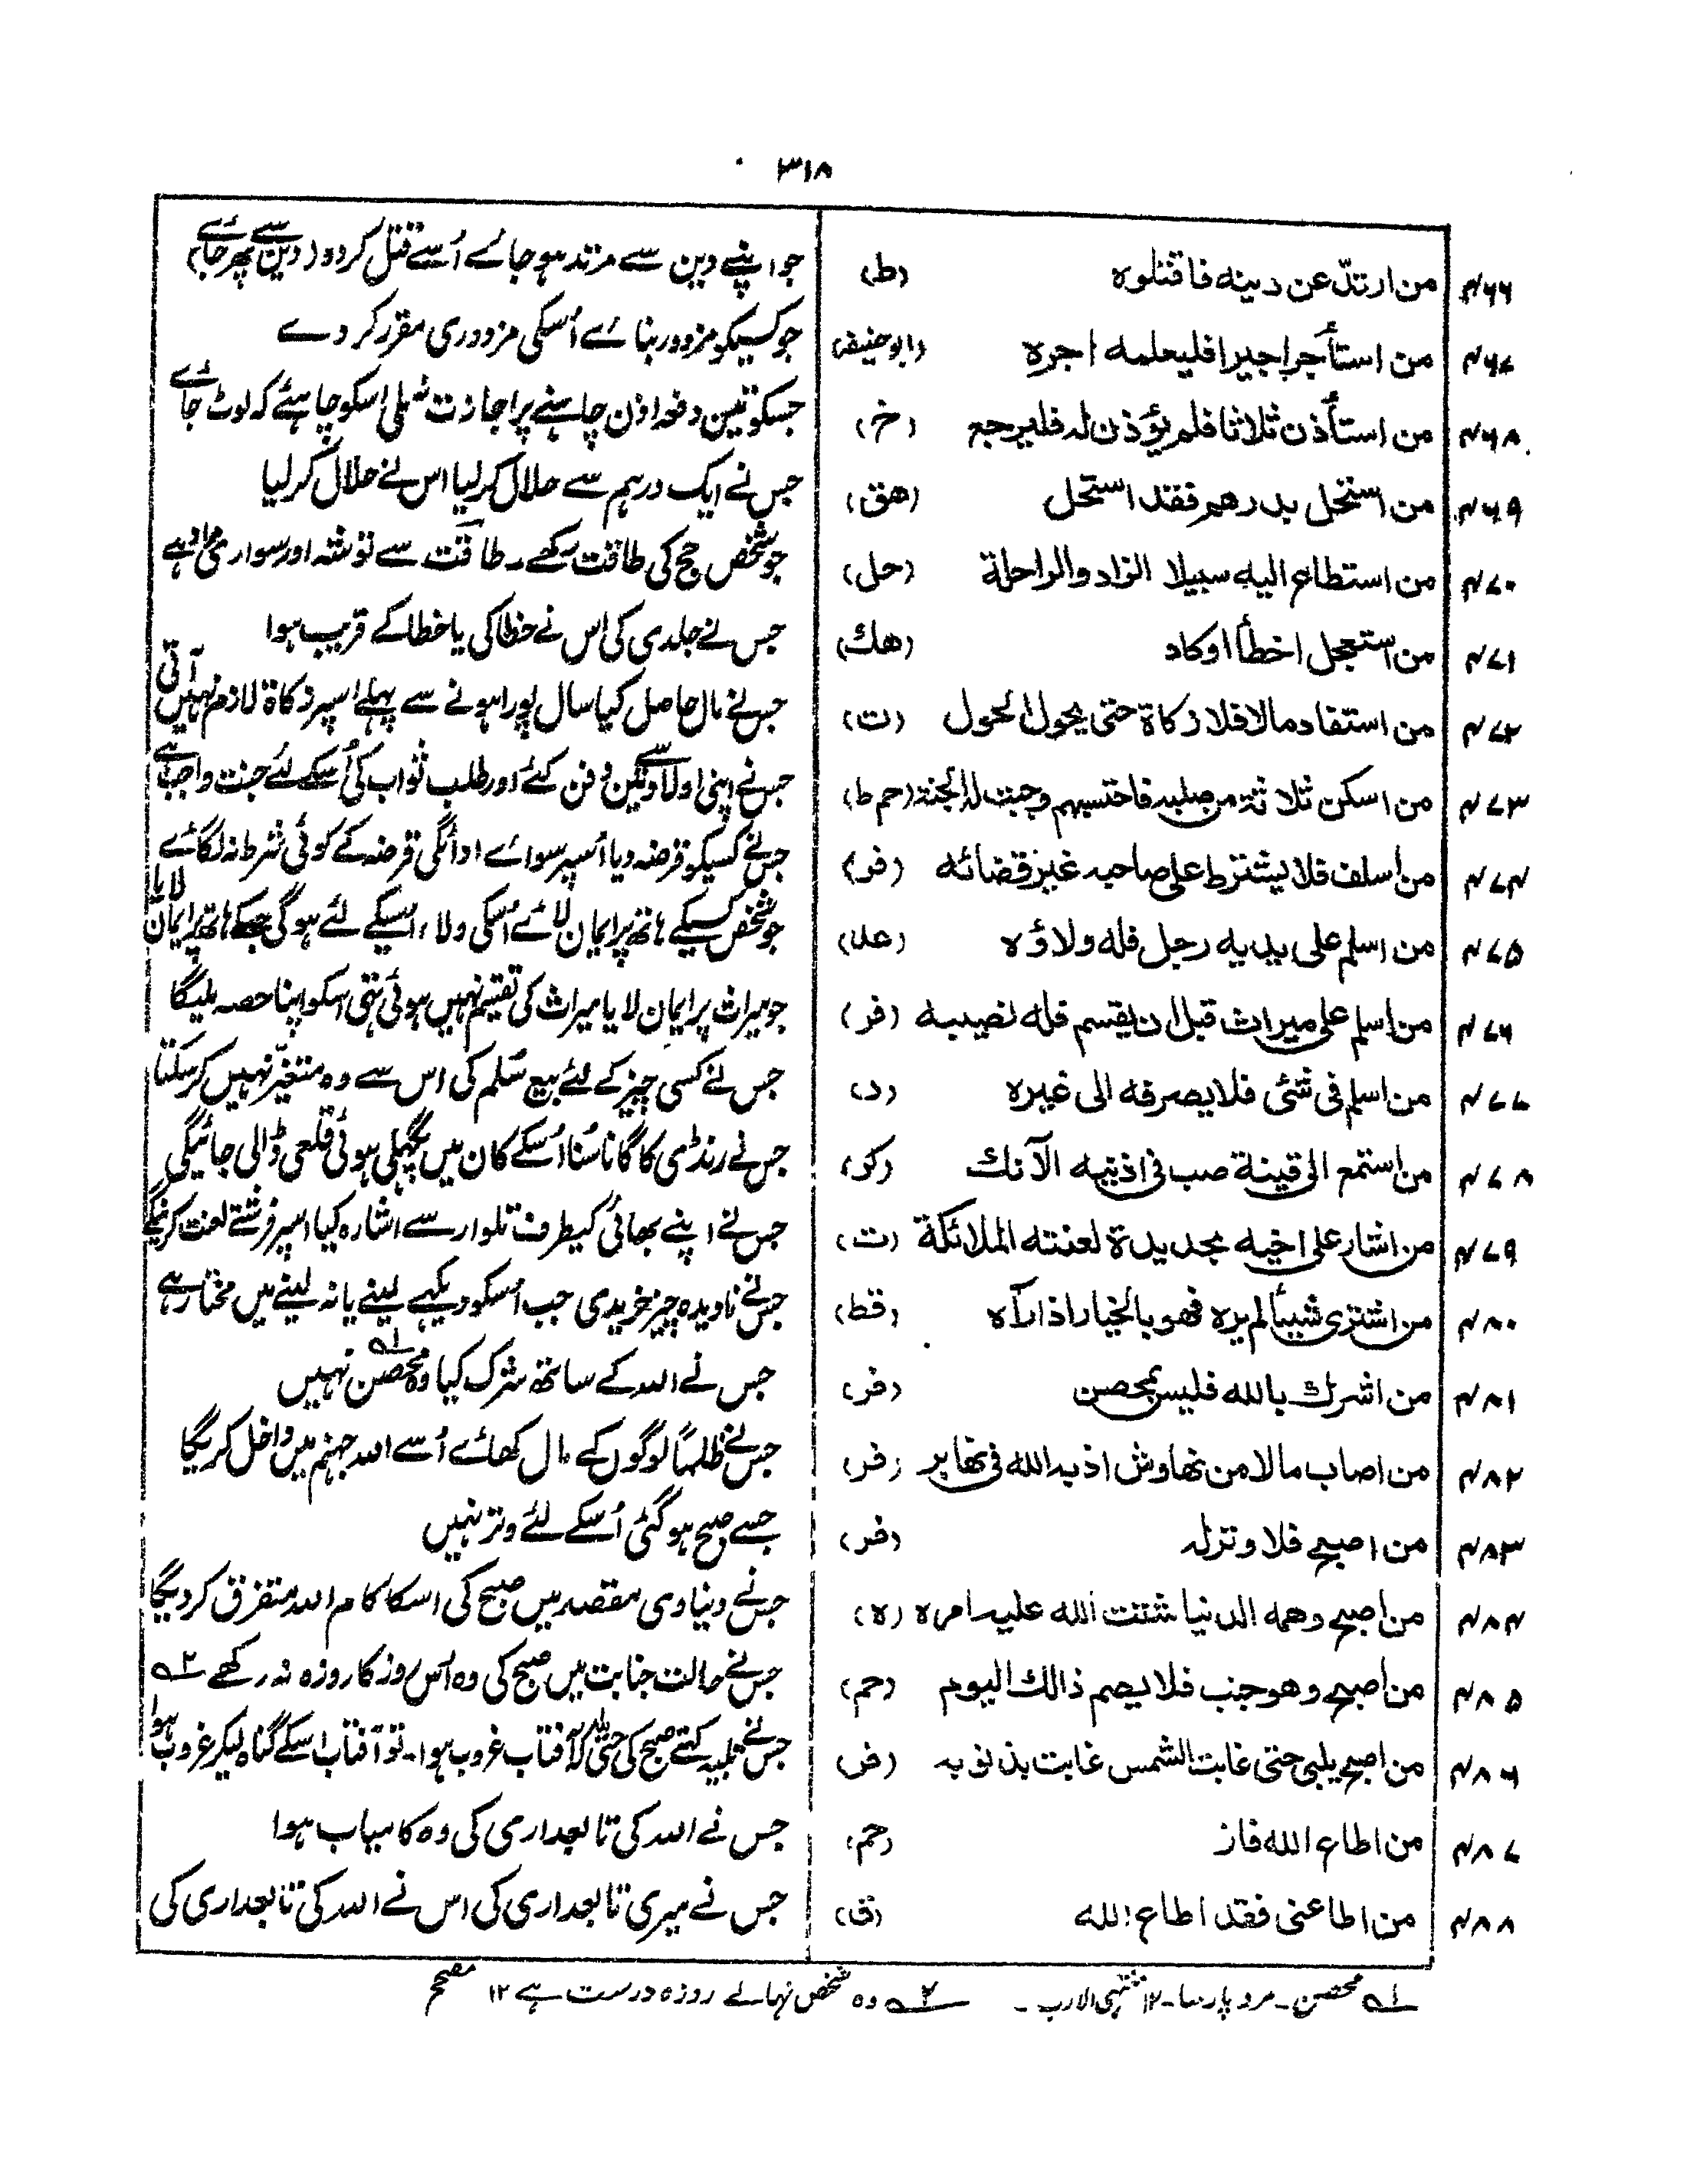 ۳۱۸
۴۶۶ من ارتدّ عن دينه فاقتلوه (ط) جو اپنے دین سے مرتد ہو جائے اُسے قتل کر دو (دین سے پھر جائے)
۴۶۷ من استأجر اجيرا فليعلمه اجره (ابوحنيفه) جو کسیکو مزدور بنائے اُسکی مزدوری مقرر کر دے
۴۶۸ من استأذن ثلاثا فلم يؤذن له فليرجع (خ) جسکو تین دفعہ اذن چاہنے پر اجازت نہ ملی اسکو چاہئے کہ لوٹ جائے
۴۶۹ من استحل بدرهم فقد استحل (هق) جس نے ایک درہم سے حلال کر لیا اس نے حلال کر لیا
۴۷۰ من استطاع اليه سبيلا الزاد والراحلة (حل) جو شخص حج کی طاقت رکھے ۔ طاقت سے توشہ اور سواری مراد ہے
۴۷۱ من استعجل اخطأ اوكاد (هك) جس نے جلدی کی اس نے خطا کی یا خطا کے قریب ہوا
۴۷۲ من استفاد مالا فلا زكاة حتى يحول الحول (ت) جس نے مال حاصل کیا سال پورا ہونے سے پہلے اسپر زکاۃ لازم نہیں آتی
۴۷۳ من اسكن ثلاثة من صلبه فاحتسبهم وجبت له الجنة (حم ط) جس نے اپنی اولاد سے تین دفن کئے اور طلب ثواب کی اُسکے لئے جنت واجب ہے
۴۷۴ من أسلف فلا يشترط على صاحبه غير قضائه (فر) جس نے کسیکو قرضہ دیا اُسپر سوائے ادائگی قرضہ کے کوئی شرط نہ لگائے
۴۷۵ من اسلم على يديه رجل فله ولاؤه (علا) جو شخص کسیکے ہاتھ پر ایمان لائے اُسکی ولاء اسیکے لئے ہو گی جسکے ہاتھ پر ایمان لایا
۴۷۶ من اسلم على ميراث قبل ان يقسم فله نصيبه (فر) جو میراث پر ایمان لایا میراث کی تقسیم نہیں ہوئی تھی اسکو اپنا حصہ ملیگا
۴۷۷ من اسلم فى شئى فلا يصرفه الى غيره (د) جس نے کسی چیز کے لئے بیع سَلم کی اس سے وہ متغیّر نہیں کر سکتا
۴۷۸ من استمع الى قينة صب فى اذنيه الآنك (كر) جس نے رنڈی کا گانا سُنا اُسکے کان میں پگھلی ہوئی قلعی ڈالی جائیگی
۴۷۹ من اشار على اخيه بحديدة لعنته الملائكة (ت) جس نے اپنے بھائی کیطرف تلوار سے اشارہ کیا اسپر فرشتے لعنت کرینگے
۴۸۰ من اشترى شيئا لم يره فهو بالخيار اذا رآه (قط) جس نے نادیدہ چیز خریدی جب اُسکو دیکھے لینے یا نہ لینے میں مختار ہے
۴۸۱ من اشرك بالله فليس بمحصن (فر) جس نے اللہ کے ساتھ شرک کیا وہ محصن نہیں ۱ے
۴۸۲ من اصاب مالا من نهاوش اذبه الله فى نهابر (فر) جس نے ظلماً لوگوں کے مال کھائے اُسے اللہ جہنم میں داخل کریگا
۴۸۳ من اصبح فلا وتر له (فر) جسے صبح ہو گئی اُسکے لئے وتر نہیں
۴۸۴ من اصبح وهمه الدنيا شتت الله عليه امره (ه) جس نے دنیاوی مقصد میں صبح کی اسکا کام اللہ متفرق کر دیگا
۴۸۵ من أصبح وهو جنب فلا يصم ذالك اليوم (حم) جس نے حالت جنابت میں صبح کی وہ اُس روز کا روزہ نہ رکھے ۲ے
۴۸۶ من اصبح يلبى حتى غابت الشمس غابت بذنوبه (ض) جس نے تلبیہ کہتے صبح کی حتیٰ کہ آفتاب غروب ہوا ۔ تو آفتاب اسکے گناہ لیکر غروب ہوا
۴۸۷ من اطاع الله فاز (حم) جس نے اللہ کی تابعداری کی وہ کامیاب ہوا
۴۸۸ من اطاعنى فقد اطاع الله (ق) جس نے میری تابعداری کی اس نے اللہ کی تابعداری کی
۱ے محصن ۔ مرد پارسا ۔ ۱۲ منتہی الارب ۔ ۲ے وہ شخص نہالے روزہ درست ہے ۱۲ مصحح